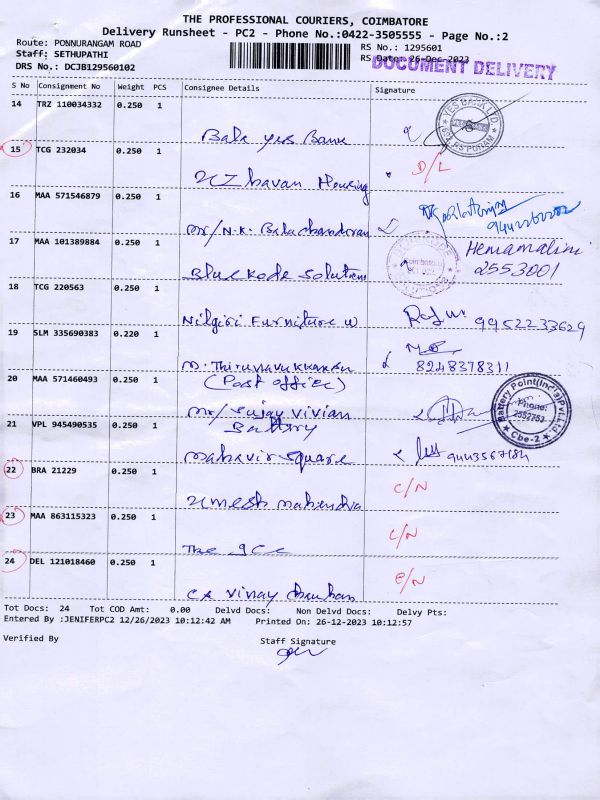 THE PROFESSIONAL COURIERS, COIMBATORE
Delivery Runsheet - PC2 - Phone No.:0422-3505555 - Page No.:2
Route: PONNURANGAM ROAD
Staff: SETHUPATHI
DRS No.: DCJB129560102
RS No.: 1295601
RS Date: 26-Dec-2023
DOCUMENT DELIVERY
S No Consignment No Weight PCS Consignee Details Signature
14 TRZ 110034332 0.250 1
Bala yes Bank
YES BANK LTD.
15 TCG 232034 0.250 1
Housing D/L
16 MAA 571546879 0.250 1
Mr/N.K. Balachandran
17 MAA 101389884 0.250 1
Blue Kode Solutions
Coimbatore
Hemamalini
2553001
18 TCG 220563 0.250 1
Nilgiri Furniture W
9952233629
19 SLM 335690383 0.220 1
M. Thirunavukkarasu
(Post office)
8248378311
20 MAA 571460493 0.250 1
Mr/ Sujay Vivian
Battery
Battery Point (India) Pvt Ltd
Phone: 2552753
Cbe-2
21 VPL 945490535 0.250 1
Mahavir Square 9443567184
22 BRA 21229 0.250 1
Umesh Mahendra C/N
23 MAA 863115323 0.250 1
The C/N
24 DEL 121018460 0.250 1
CA Vinay Chauhan C/N
Tot Docs: 24 Tot COD Amt: 0.00 Delvd Docs: Non Delvd Docs: Delvy Pts:
Entered By :JENIFERPC2 12/26/2023 10:12:42 AM Printed On: 26-12-2023 10:12:57
Verified By Staff Signature